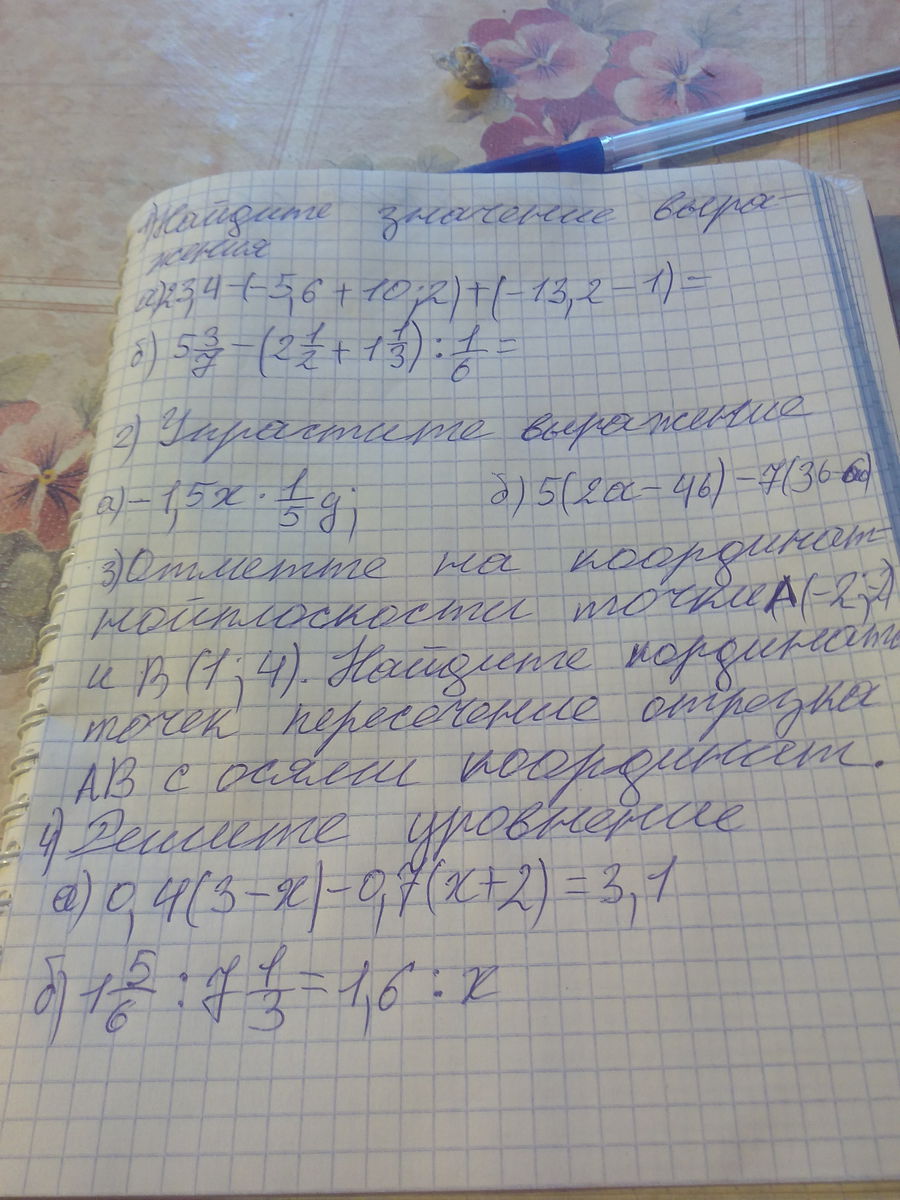 1) Найдите значение выра-
жения
а) 23,4-(-5,6+10,2)+(-13,2-1)=
б) 5 3/7-(2 1/2+1 1/3):1/6=
2) Упрастите выражение
а) -1,5х · 1/5 у; б) 5(2а-4b)-7(3b-a)
3) Отметте на координат-
нойплоскости точки А(-2;-2)
и В(1;4). Найдите кординаты
точек пересечение отрезка
АВ с осями координат.
4) Решите уровнение
а) 0,4(3-х)-0,7(х+2)=3,1
б) 1 5/6 : 7 1/3 = 1,6 : х